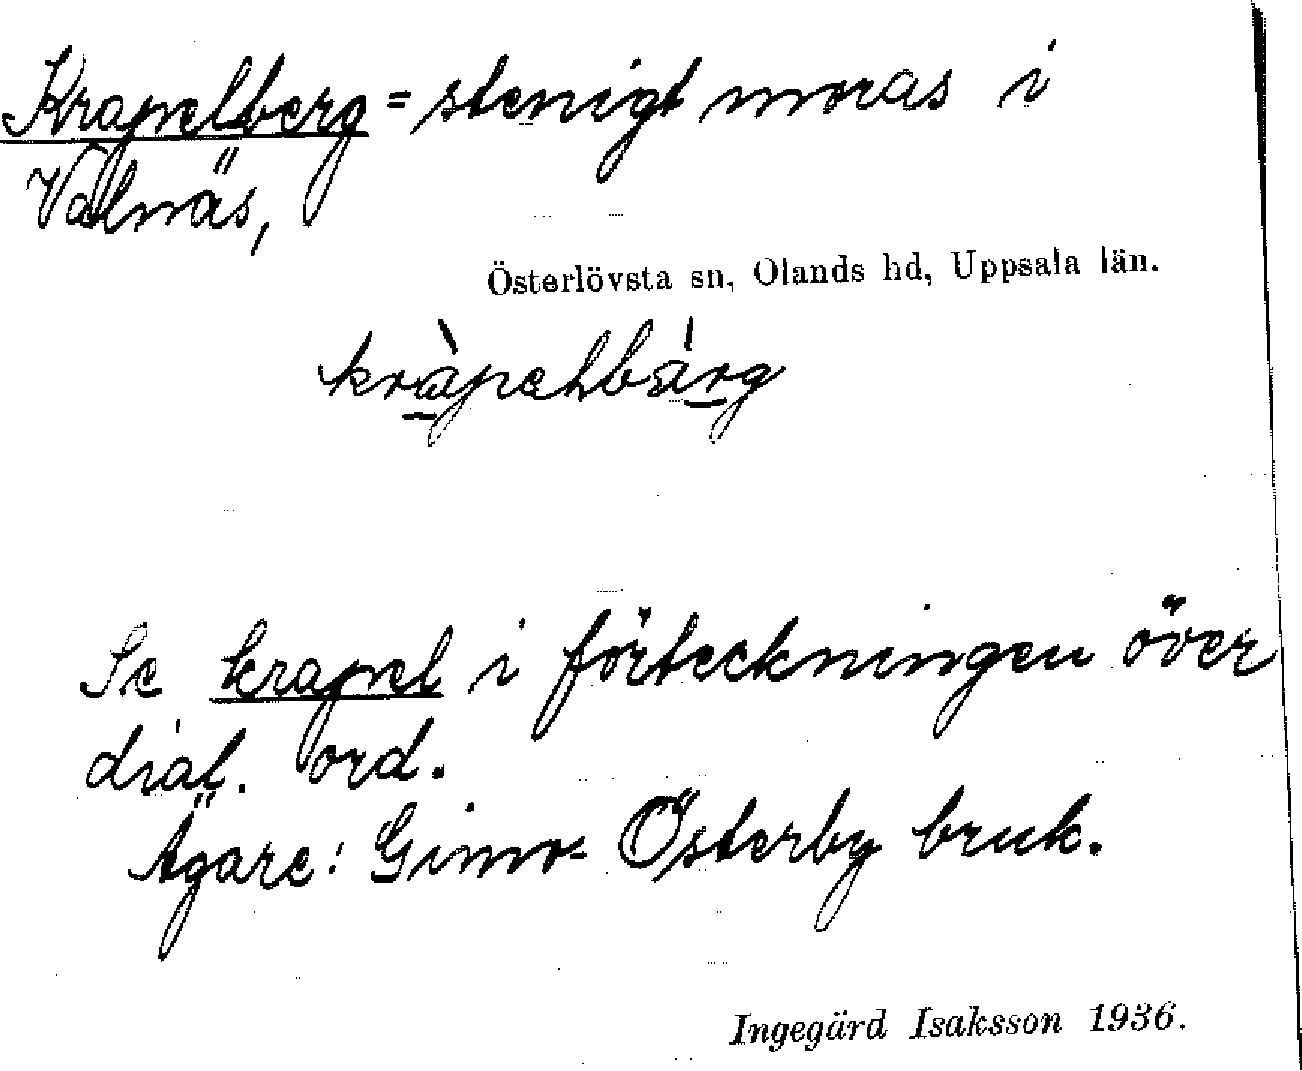 Krapelberg = stenigt moras i
Valnäs,
Österlövsta sn, Olands hd, Uppsala län.
kràpelbárg
Se krapel i förteckningen över
dial. ord.
Ägare: Gimo-Österby bruk.
Ingegärd Isaksson 1936.